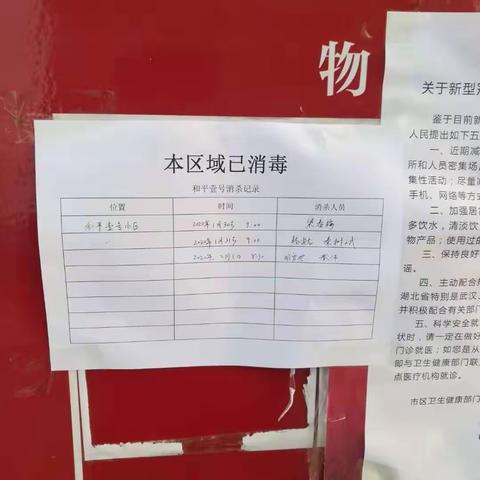 物
本区域已消毒
和平壹号消杀记录
位置 时间 消杀人员
和平壹号小区 2020年1月30号 9:00
2020年1月31号 9:00
2020年2月1日
关于新型冠
鉴于目前新
人民提出如下五
一、近期减
所和人员密集场
集性活动；尽量减
手机、网络等方式
二、加强居
多饮水，清淡饮
物产品；使用过的
三、保持良好
谣。
四、主动配合
湖北省特别是武汉、
并积极配合有关部门
五、科学安全就
状时，请一定在做好
门诊就医；如您是从
即与卫生健康部门联
点医疗机构就诊。
市区卫生健康部门